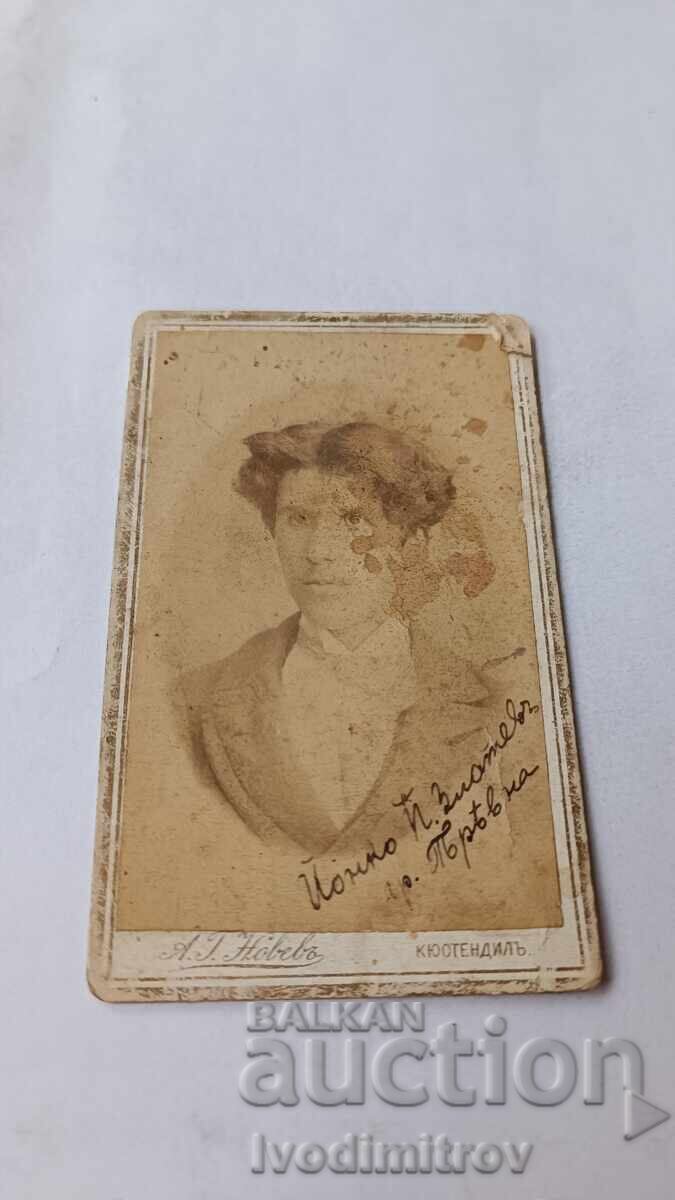 Йонко Й. Златевъ
гр. Трѣвна
А. Г. Новевъ
КЮСТЕНДИЛЪ.
BALKAN
auction
Ivodimitrov